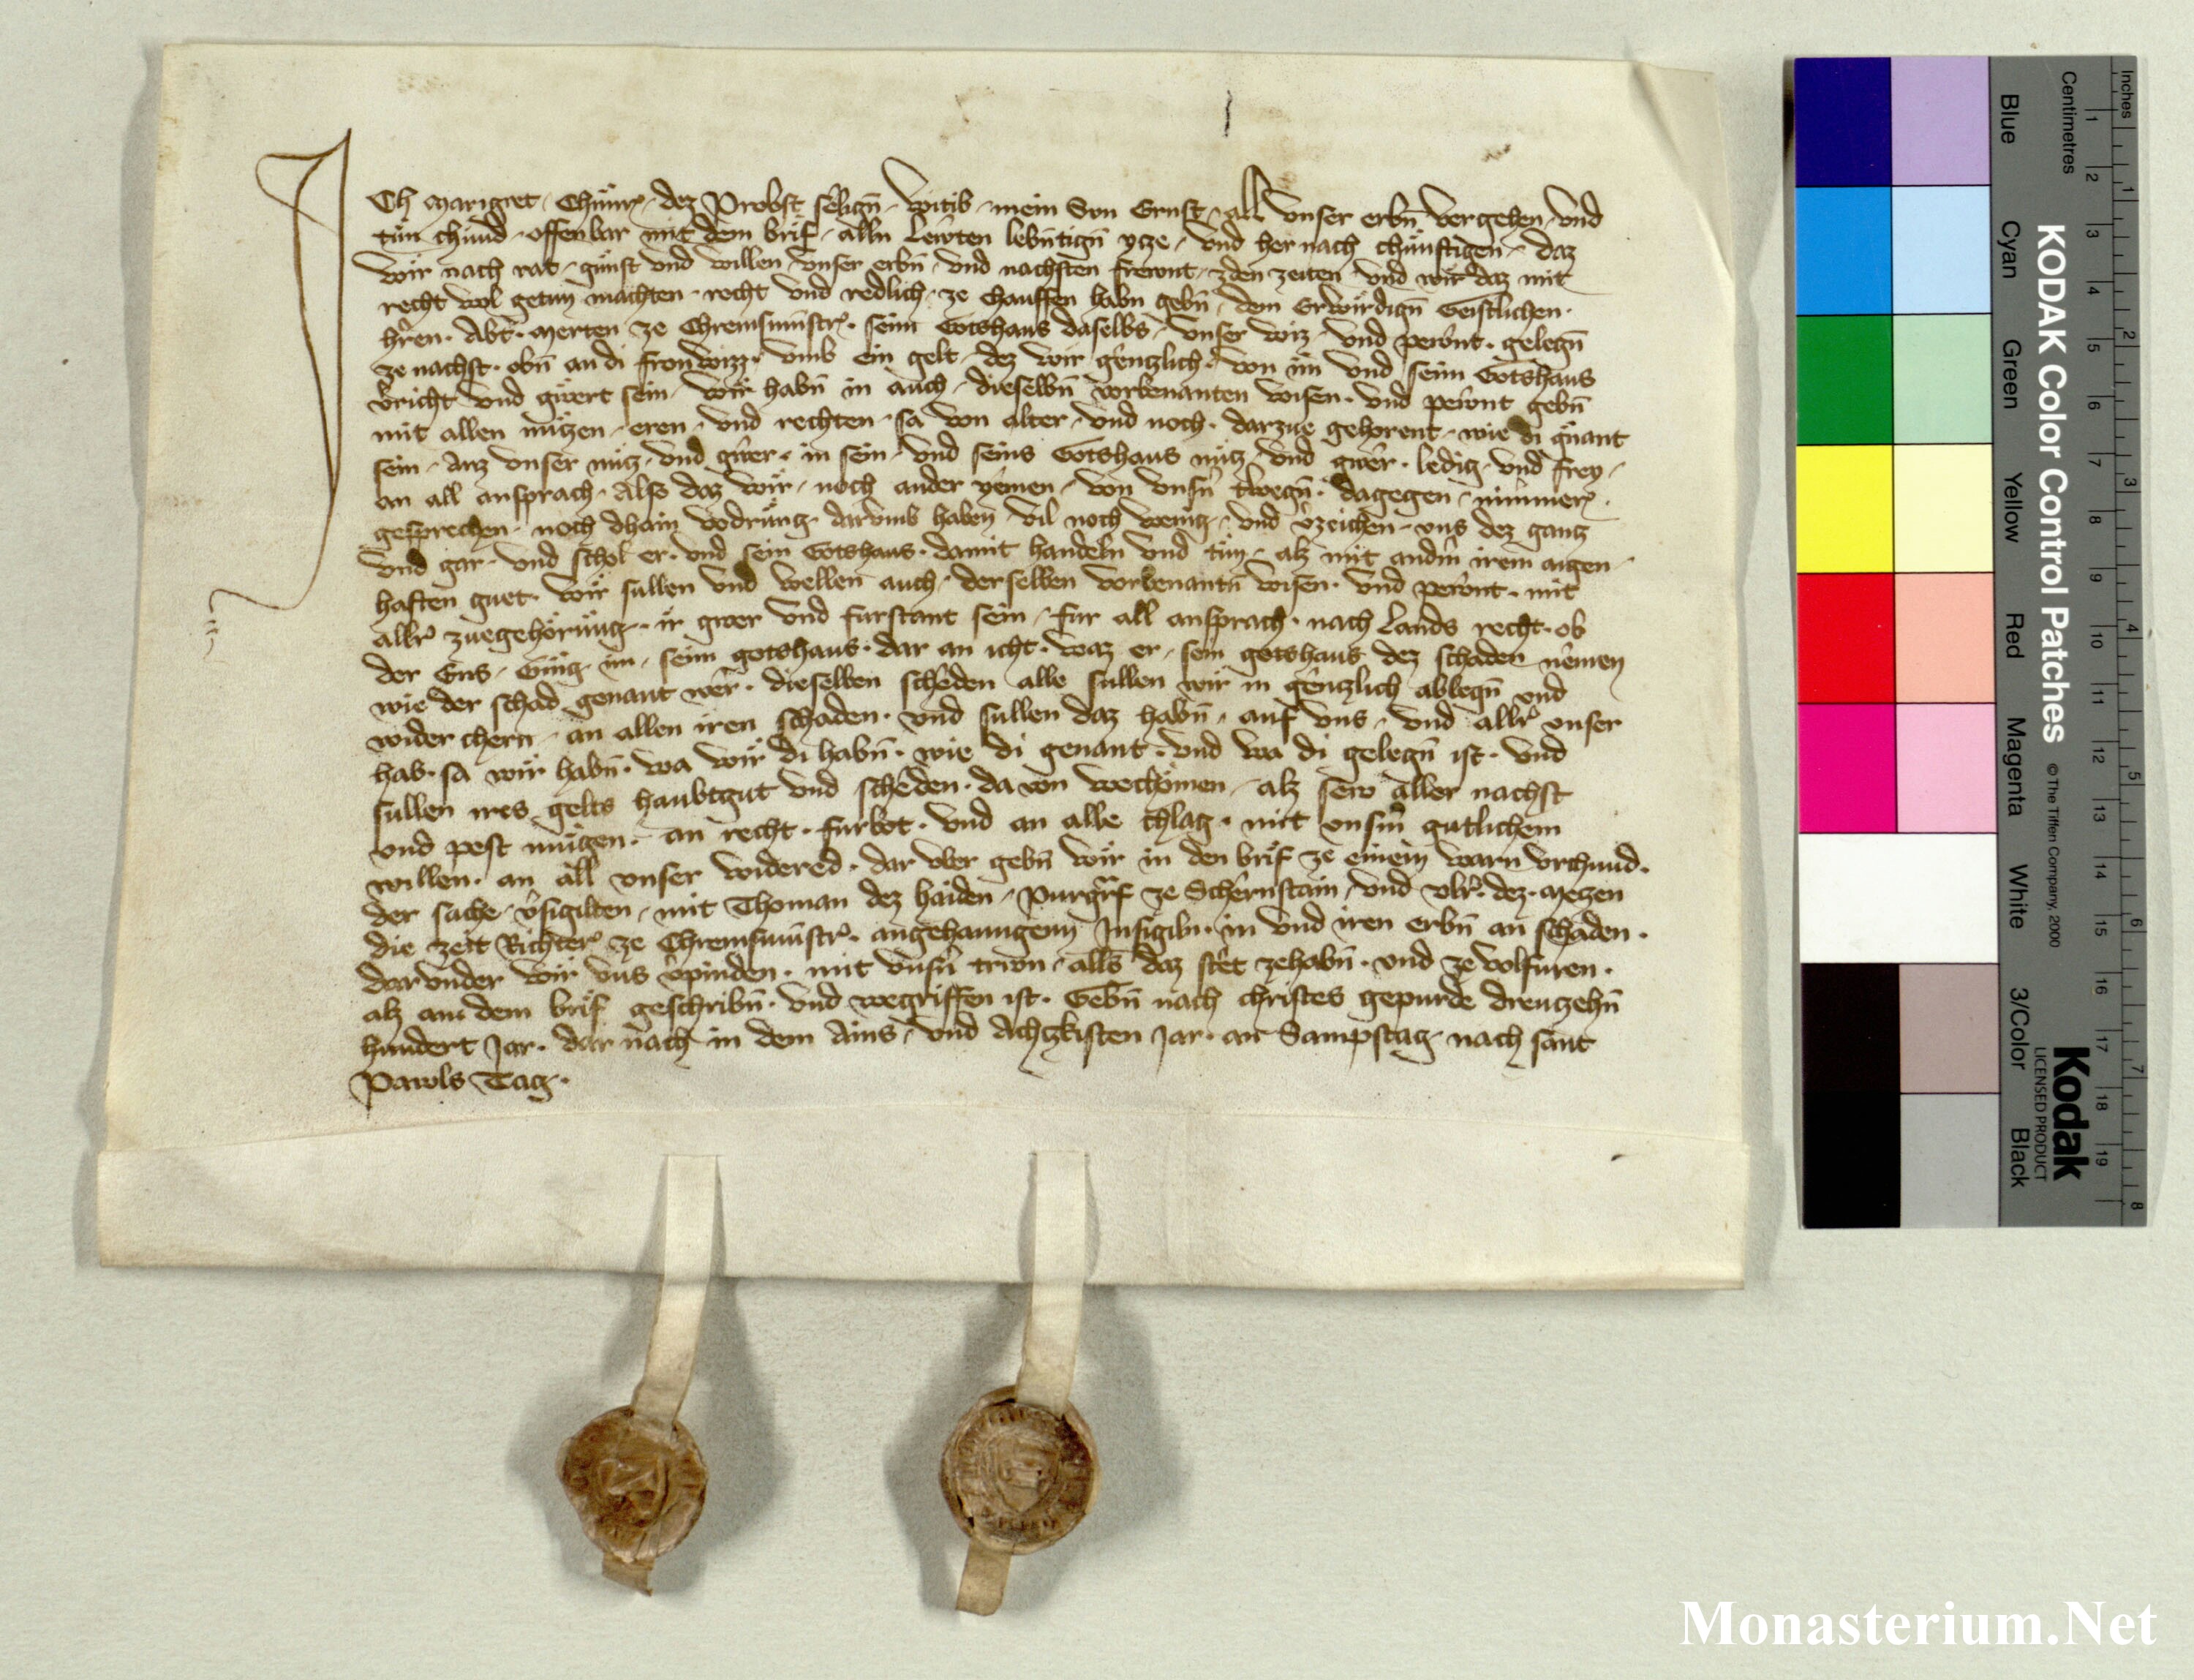 ICh Margret, Chunr. dez Probst seligñ Witib, mein Sun Ernst, all unser erbñ vergehen, und
tün chund, offenbar mit dem brif, alln Lewten lebñtigñ ytze, und her nach chünftigen, daz
wir nach rat, gunst und willen, unser erbñ, und nachsten frewnt, zden zeiten und wir daz mit
recht wol getun machten, recht und redlich, ze chauffen habn gebñ, dem Erwirdigñ Geistlichen
hren. Abt. Merten ze Chremsmunstr. seim Gotshaus daselbs, unser wiz, und pewnt, gelegñ
ze nachst, obñ an di fronwizz, umb ein gelt, dez wir gentzlich, von im und seim Gotshaus
vricht und gwert sein, wir habñ in auch, dieselbñ vorbenanten wisen, und pewnt gebñ
mit allen nützen, eren, und rechten, sa von alter, und noch, darzue gehorent, wie di gnant
sein, Auz unser nütz, und gwer, in sein, und seins Gotshaus nütz, und gwer, ledig, und frey,
an all ansprach, Also daz wir, noch ander yemen, von unsñ twegñ, dagegen, nimmer
gesprechen, noch dhain vodrung, darumb haben, vil noch wenig, und vzeichen, uns dez gantz
und gar, und schol er, und sein Gotshaus, damit handeln und tün, alz mit andm irem aigen
haften guet. Wir sullen und wellen auch, derselben vorbenantñ wisen, und pewnt, mit
allr zuegehörung, ir gwer und furstant sein, fur all ansprach, nach Lands recht, ob
der Ens, Gieng im, seim gotshaus, dar an icht, waz er, sein gotshaus dez schaden nemen
wie der schad genant wer, dieselben scheden alle sullen wir in gentzlich ablegñ und
wider chern, an allen iren schaden, und sullen daz habñ, auf uns, und allr unser
hab, sa wir habñ, wa wir di habñ, wie di genant, und wa di gelegñ ist, und
sullen ires gelts haubtgut und scheden, da von wechömen, alz sew aller nachst
und pest mügen, an recht, furbot, und an alle chlag, mit unsm gutlichem
willen, an all unser widered, dar uber gebñ wir in den brif ze einem warn urchund
der sache, vsigilten, mit Thoman dez haiden, Purgraf ze Schernstain, und Ulr. dez Metzen
die zeit Richter ze Chremsmunstr. angehanngenn Insigiln, in und iren erbñ an schaden
darunder wir uns vpinden, mit unsñ triwn, alls daz stet zehabñ, und ze volfuren
alz an dem brif geschribñ, und wegriffen ist. Gebñ nach christes gepurde drewzehñ
hundert Jar, dar nach in dem Ains, und Achtzkisten Jar, an Sampstag nach sant
Pawls Tag.
Inches
Centimetres
KODAK Color Control Patches
© The Tiffen Company, 2000
Kodak
LICENSED PRODUCT
Blue
Cyan
Green
Yellow
Red
Magenta
White
3/Color
Black
1 2 3 4 5 6 7 8 9 10 11 12 13 14 15 16 17 18 19
1 2 3 4 5 6 7 8
Monasterium.Net